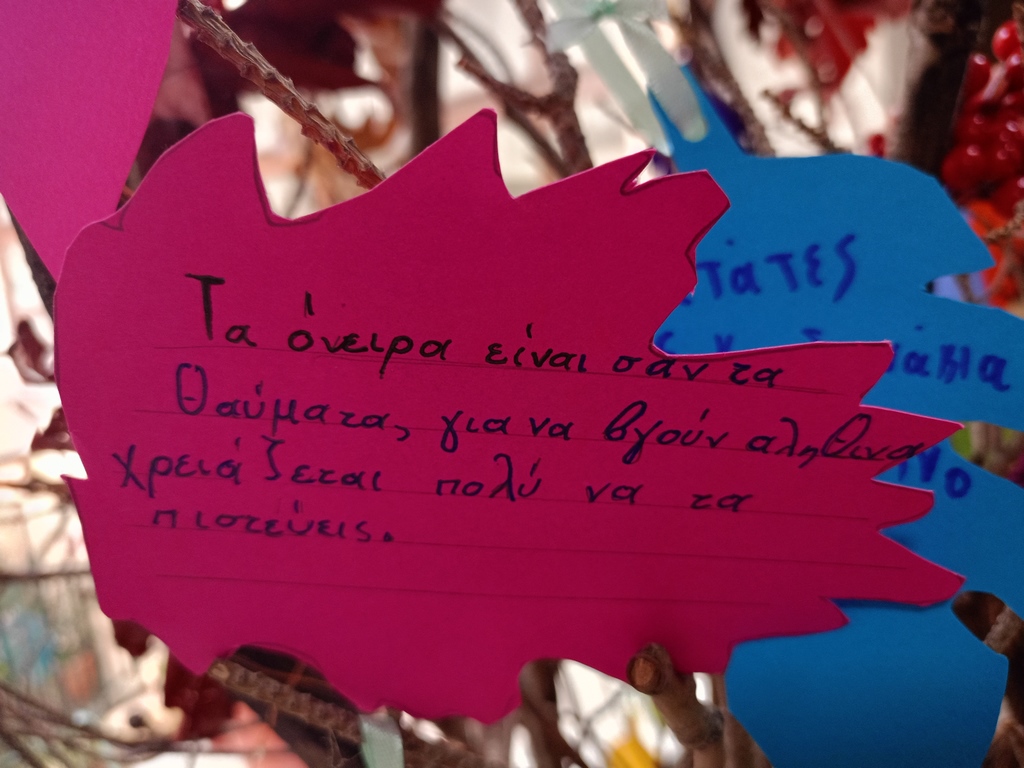 Τα όνειρα είναι σαν τα
θαύματα, για να βγούν αληθινα
χρειάζεται πολύ να τα
πιστεύεις.